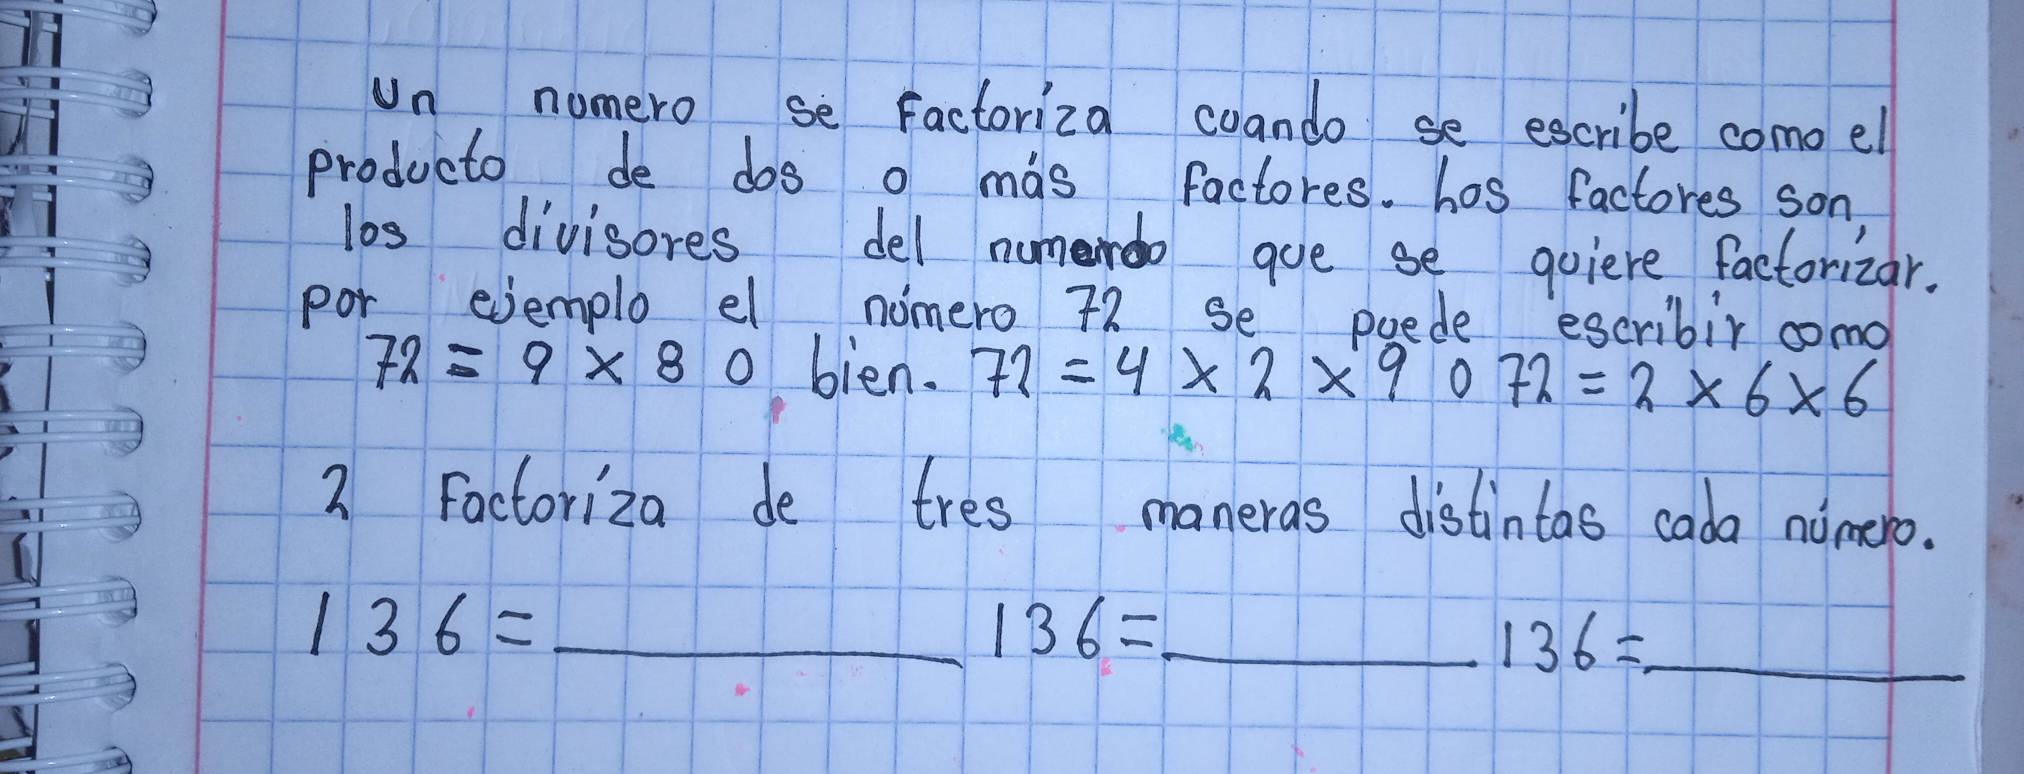 Un numero se Factoriza cuando se escribe como el
producto de dos o más factores. Los factores son,
los divisores del numerdo que se quiere factorizar.
por ejemplo el número 72 se puede escribir como
72 = 9 x 8 o bien. 72 = 4 x 2 x 9 o 72 = 2 x 6 x 6
2 Factoriza de tres maneras distintas cada número.
136 = ________ 136 = ________ 136 = ________